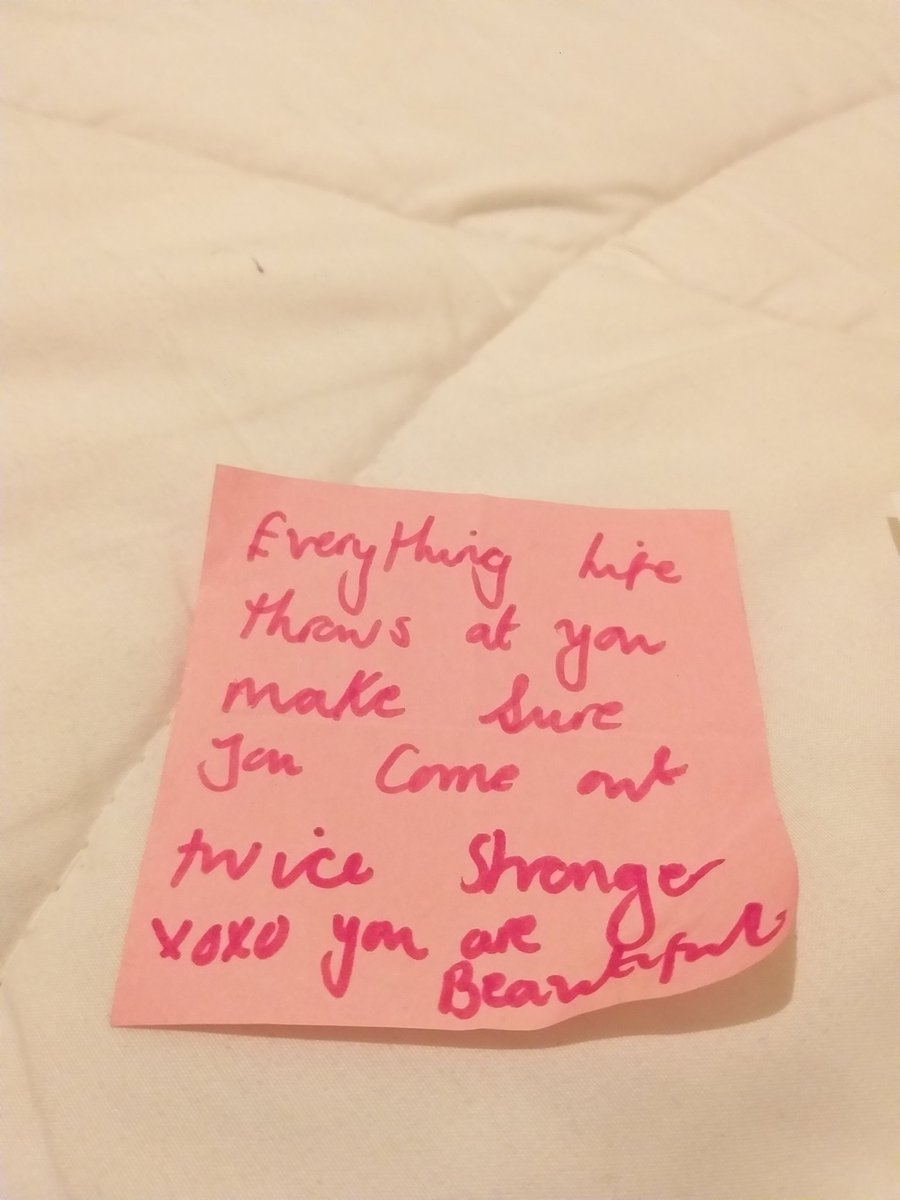 Everything Life
throws at you
make Sure
you Come out
twice Stronger
xoxo you are
Beautiful